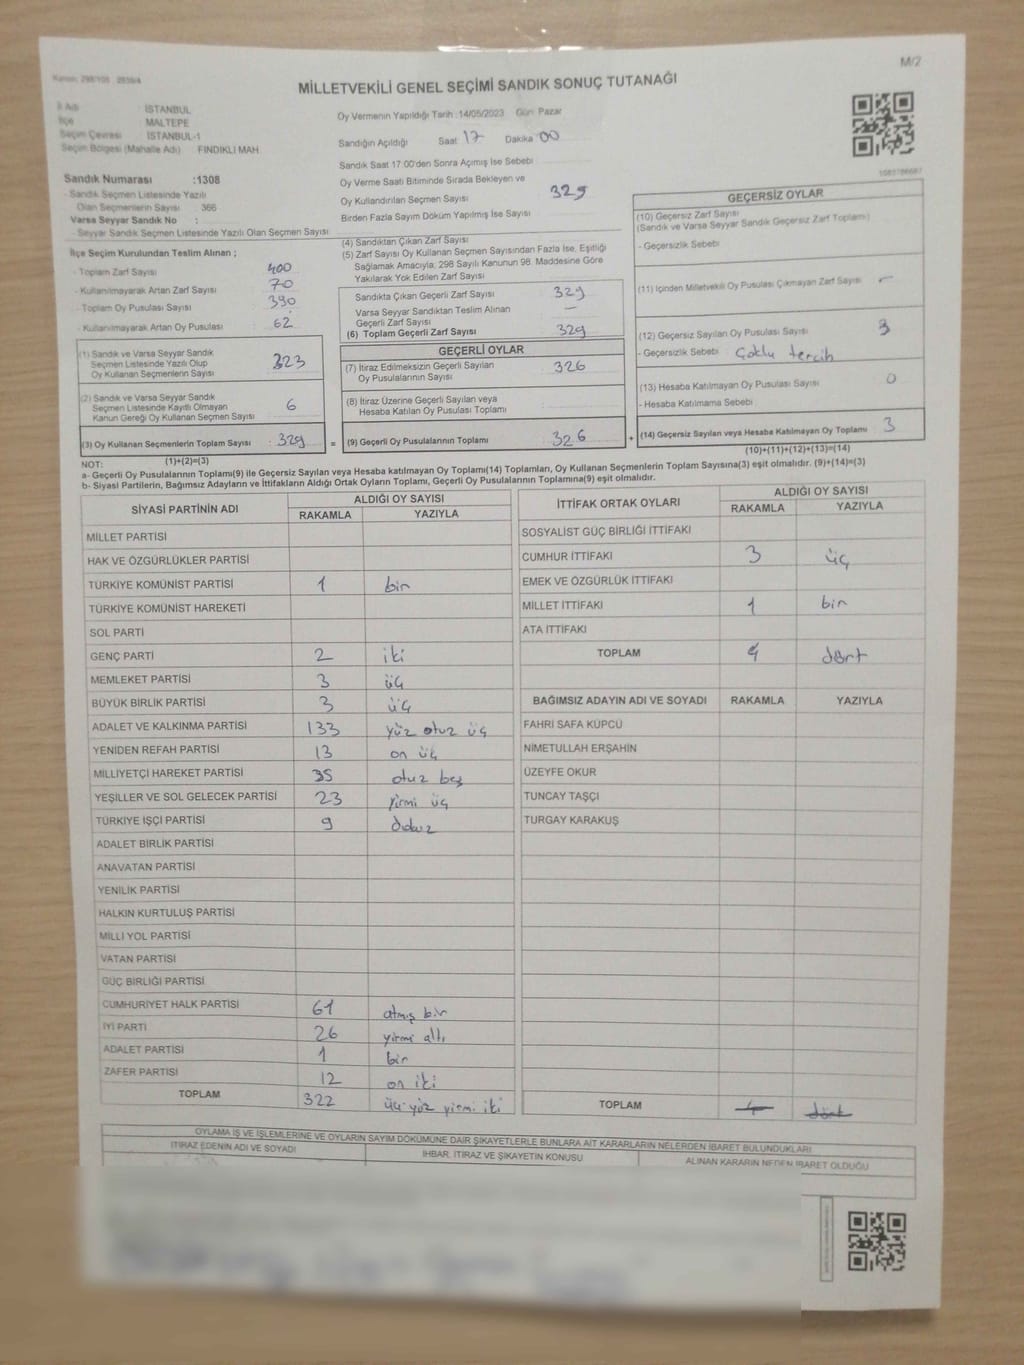 M/2
Kanun: 298/105 2839/4
MİLLETVEKİLİ GENEL SEÇİMİ SANDIK SONUÇ TUTANAĞI
İl Adı : İSTANBUL
İlçe : MALTEPE
Seçim Çevresi : İSTANBUL-1
Seçim Bölgesi (Mahalle Adı) : FINDIKLI MAH.
Sandık Numarası :1308
- Sandık Seçmen Listesinde Yazılı
Olan Seçmenlerin Sayısı : 366
Varsa Seyyar Sandık No :
- Seyyar Sandık Seçmen Listesinde Yazılı Olan Seçmen Sayısı :
İlçe Seçim Kurulundan Teslim Alınan ;
- Toplam Zarf Sayısı : 400
- Kullanılmayarak Artan Zarf Sayısı : 70
- Toplam Oy Pusulası Sayısı : 390
- Kullanılmayarak Artan Oy Pusulası : 62
(1) Sandık ve Varsa Seyyar Sandık
Seçmen Listesinde Yazılı Olup
Oy Kullanan Seçmenlerin Sayısı : 323
(2) Sandık ve Varsa Seyyar Sandık
Seçmen Listesinde Kayıtlı Olmayan
Kanun Gereği Oy Kullanan Seçmen Sayısı : 6
(3) Oy Kullanan Seçmenlerin Toplam Sayısı : 329
(1)+(2)=(3)
Oy Vermenin Yapıldığı Tarih :14/05/2023 Gün: Pazar
Sandığın Açıldığı Saat 17 Dakika 00
Sandık Saat 17:00'den Sonra Açımış İse Sebebi
Oy Verme Saati Bitiminde Sırada Bekleyen ve
Oy Kullandırılan Seçmen Sayısı 329
Birden Fazla Sayım Döküm Yapılmış İse Sayısı
(4) Sandıktan Çıkan Zarf Sayısı
(5) Zarf Sayısı Oy Kullanan Seçmen Sayısından Fazla İse, Eşitliği
Sağlamak Amacıyla, 298 Sayılı Kanunun 98. Maddesine Göre
Yakılarak Yok Edilen Zarf Sayısı
Sandıkta Çıkan Geçerli Zarf Sayısı : 329
Varsa Seyyar Sandıktan Teslim Alınan
Geçerli Zarf Sayısı : —
(6) Toplam Geçerli Zarf Sayısı : 329
GEÇERLİ OYLAR
(7) İtiraz Edilmeksizin Geçerli Sayılan
Oy Pusulalarının Sayısı : 326
(8) İtiraz Üzerine Geçerli Sayılan veya
Hesaba Katılan Oy Pusulası Toplamı :
= (9) Geçerli Oy Pusulalarının Toplamı : 326
GEÇERSİZ OYLAR
(10) Geçersiz Zarf Sayısı
(Sandık ve Varsa Seyyar Sandık Geçersiz Zarf Toplamı)
- Geçersizlik Sebebi
(11) İçinden Milletvekili Oy Pusulası Çıkmayan Zarf Sayısı : —
(12) Geçersiz Sayılan Oy Pusulası Sayısı : 3
- Geçersizlik Sebebi : Çoklu tercih
(13) Hesaba Katılmayan Oy Pusulası Sayısı : 0
- Hesaba Katılmama Sebebi :
+ (14) Geçersiz Sayılan veya Hesaba Katılmayan Oy Toplamı : 3
(10)+(11)+(12)+(13)=(14)
NOT:
a- Geçerli Oy Pusulalarının Toplamı(9) ile Geçersiz Sayılan veya Hesaba katılmayan Oy Toplamı(14) Toplamları, Oy Kullanan Seçmenlerin Toplam Sayısına(3) eşit olmalıdır. (9)+(14)=(3)
b- Siyasi Partilerin, Bağımsız Adayların ve İttifakların Aldığı Ortak Oyların Toplamı, Geçerli Oy Pusulalarının Toplamına(9) eşit olmalıdır.
SİYASİ PARTİNİN ADI ALDIĞI OY SAYISI
RAKAMLA YAZIYLA
MİLLET PARTİSİ
HAK VE ÖZGÜRLÜKLER PARTİSİ
TÜRKİYE KOMÜNİST PARTİSİ 1 bir
TÜRKİYE KOMÜNİST HAREKETİ
SOL PARTİ
GENÇ PARTİ 2 iki
MEMLEKET PARTİSİ 3 üç
BÜYÜK BİRLİK PARTİSİ 3 üç
ADALET VE KALKINMA PARTİSİ 133 yüz otuz üç
YENİDEN REFAH PARTİSİ 13 on üç
MİLLİYETÇİ HAREKET PARTİSİ 35 otuz beş
YEŞİLLER VE SOL GELECEK PARTİSİ 23 yirmi üç
TÜRKİYE İŞÇİ PARTİSİ 9 dokuz
ADALET BİRLİK PARTİSİ
ANAVATAN PARTİSİ
YENİLİK PARTİSİ
HALKIN KURTULUŞ PARTİSİ
MİLLİ YOL PARTİSİ
VATAN PARTİSİ
GÜÇ BİRLİĞİ PARTİSİ
CUMHURİYET HALK PARTİSİ 61 atmış bir
İYİ PARTİ 26 yirmi altı
ADALET PARTİSİ 1 bir
ZAFER PARTİSİ 12 on iki
TOPLAM 322 üç yüz yirmi iki
İTTİFAK ORTAK OYLARI ALDIĞI OY SAYISI
RAKAMLA YAZIYLA
SOSYALİST GÜÇ BİRLİĞİ İTTİFAKI
CUMHUR İTTİFAKI 3 üç
EMEK VE ÖZGÜRLÜK İTTİFAKI
MİLLET İTTİFAKI 1 bir
ATA İTTİFAKI
TOPLAM 4 dört
BAĞIMSIZ ADAYIN ADI VE SOYADI RAKAMLA YAZIYLA
FAHRİ SAFA KÜPCÜ
NİMETULLAH ERŞAHİN
ÜZEYFE OKUR
TUNCAY TAŞÇI
TURGAY KARAKUŞ
TOPLAM 4 dört
OYLAMA İŞ VE İŞLEMLERİNE VE OYLARIN SAYIM DÖKÜMÜNE DAİR ŞİKAYETLERLE BUNLARA AİT KARARLARIN NELERDEN İBARET BULUNDUKLARI
İTİRAZ EDENİN ADI VE SOYADI İHBAR, İTİRAZ VE ŞİKAYETİN KONUSU ALINAN KARARIN NEDEN İBARET OLDUĞU